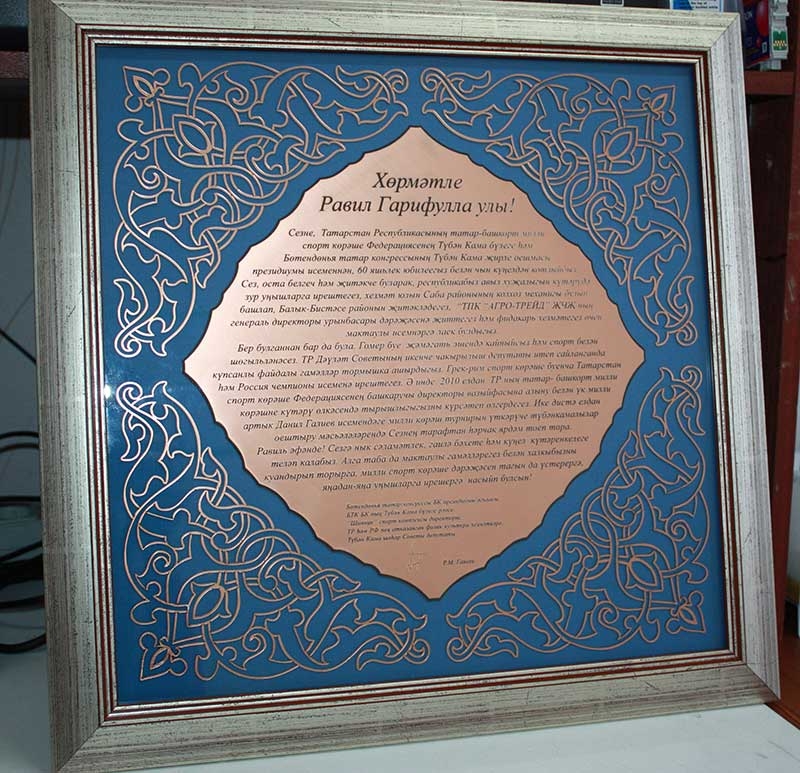 Хөрмәтле
Равил Гарифулла улы!
Сезне, Татарстан Республикасының татар-башкорт милли
спорт көрәше Федерациясенең Түбән Кама бүлеге һәм
Бөтендөнья татар конгрессының Түбән Кама җирле оешмасы
президиумы исеменнән, 60 яшьлек юбилеегыз белән чын күңелдән котлыйбыз.
Сез, оста белгеч һәм җитәкче буларак, республикабыз авыл хуҗалыгын күтәрүдә
зур уңышларга ирештегез, хезмәт юлын Саба районының колхоз механигы булып
башлап, Балык-Бистәсе районын җитәкләдегез, "ТПК "АГРО-ТРЕЙД" ҖЧҖ нең
генераль директоры урынбасары дәрәҗәсенә җиттегез һәм фидакарь хезмәтегез өчен
мактаулы исемнәргә лаек булдыгыз.
Бер булганнан бар да була. Гомер буе җәмәгать эшендә кайныйсыз һәм спорт белән
шөгыльләнәсез. ТР Дәүләт Советының икенче чакырылыш депутаты итеп сайланганда
күпсанлы файдалы гамәлләр тормышка ашырдыгыз. Грек-рим спорт көрәше буенча Татарстан
һәм Россия чемпионы исеменә ирештегез. Ә инде 2010 елдан ТР ның татар- башкорт милли
спорт көрәше Федерациясенең башкаручы директоры вазыйфасына алыну белән үк милли
көрәшне күтәрү өлкәсендә тырышлыгыгызны күрсәтеп өлгердегез. Ике дистә елдан
артык Данил Галиев исемендәге милли көрәш турнирын үткәрүче түбәнкамалылар
оештыру мәсьәләләрендә Сезнең тарафтан һәрчак ярдәм тоеп тора.
Равиль әфәнде! Сезгә нык сәламәтлек, гаилә бәхете һәм күңел күтәренкелеге
теләп калабыз. Алга таба да мактаулы гамәлләрегез белән халкыбызны
куандырып торырга, милли спорт көрәше дәрәҗәсен тагын да үстерергә,
яңадан-яңа уңышларга ирешергә насыйп булсын!
Бөтендөнья татар конгрессы БК президиумы әгъзасы,
БТК БК ның Түбән Кама бүлеге рәисе
"Шинник" спорт комплексы директоры,
ТР һәм РФ нең атказанган физик культура хезмәткәре,
Түбән Кама шәһәр Советы депутаты
Р.М.